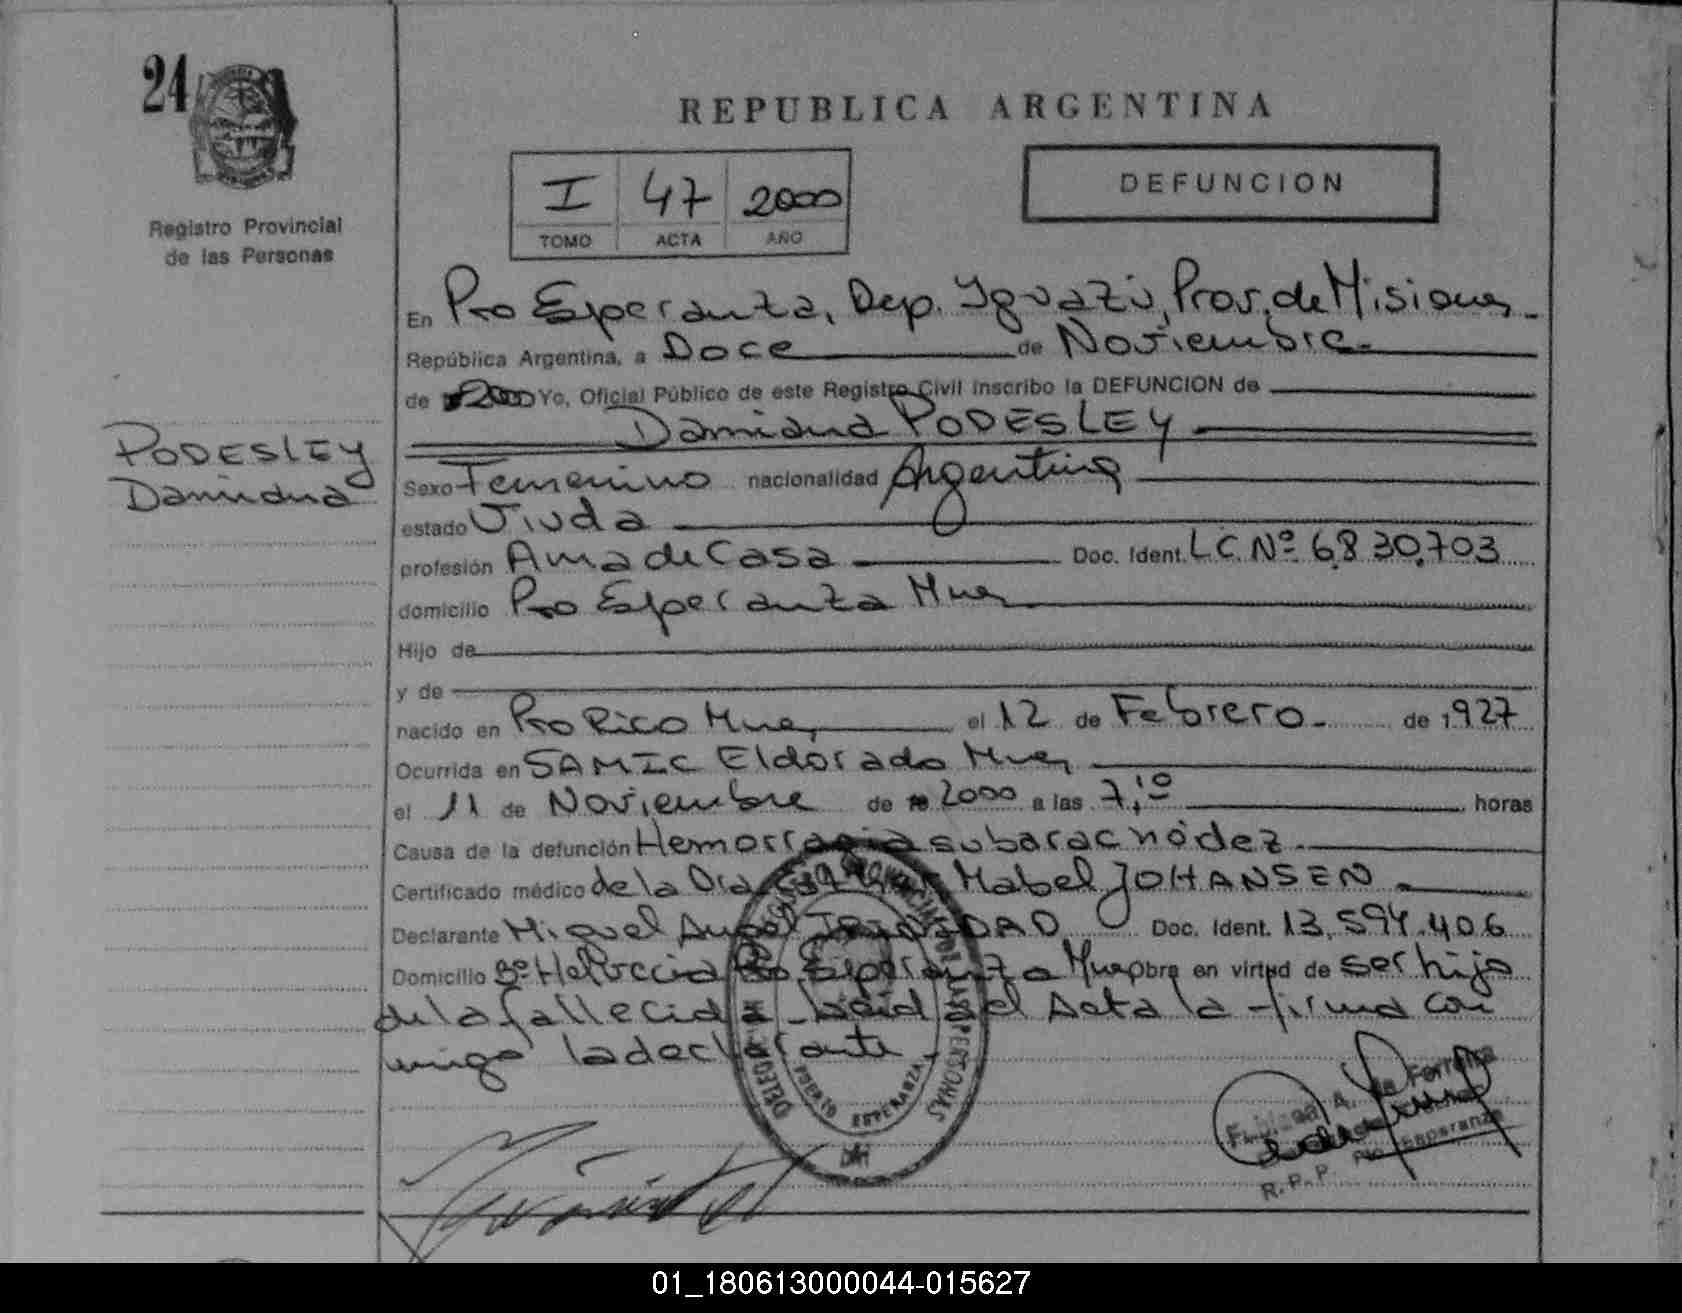 24
REPUBLICA ARGENTINA
Registro Provincial
de las Personas
I 47 2000
TOMO ACTA AÑO
DEFUNCION
En Pto Esperanza, Dep. Iguazú, Prov. de Misiones
República Argentina, a Doce de Noviembre
de 2000 Yo, Oficial Público de este Registro Civil inscribo la DEFUNCION de
Damiana PODESLEY
PODESLEY
Damiana
Sexo Femenino nacionalidad Argentina
estado Viuda
profesión Ama de Casa Doc. Ident. L.C. Nº 6.830.703
domicilio Pto Esperanza Mnes
Hijo de
y de
nacido en Pto Rico Mnes el 12 de Febrero de 1927
Ocurrida en SAMIC Eldorado Mnes
el 11 de Noviembre de 2000 a las 7,10 horas
Causa de la defunción Hemorragia subaracnódez
Certificado médico de la Dra Mabel JOHANSEN
Declarante Miguel Angel Doc. Ident. 13.594.406
Domicilio Bº Helvecia Pto Esperanza Mnes obra en virtud de ser hijo
de la fallecida Leida el Acta la firma con
migo la declarante
DELEG. REGISTRO PROVINCIAL DE LAS PERSONAS
PUERTO ESPERANZA
A. de Ferreira
R. P. P. Pto Esperanza
01_180613000044-015627